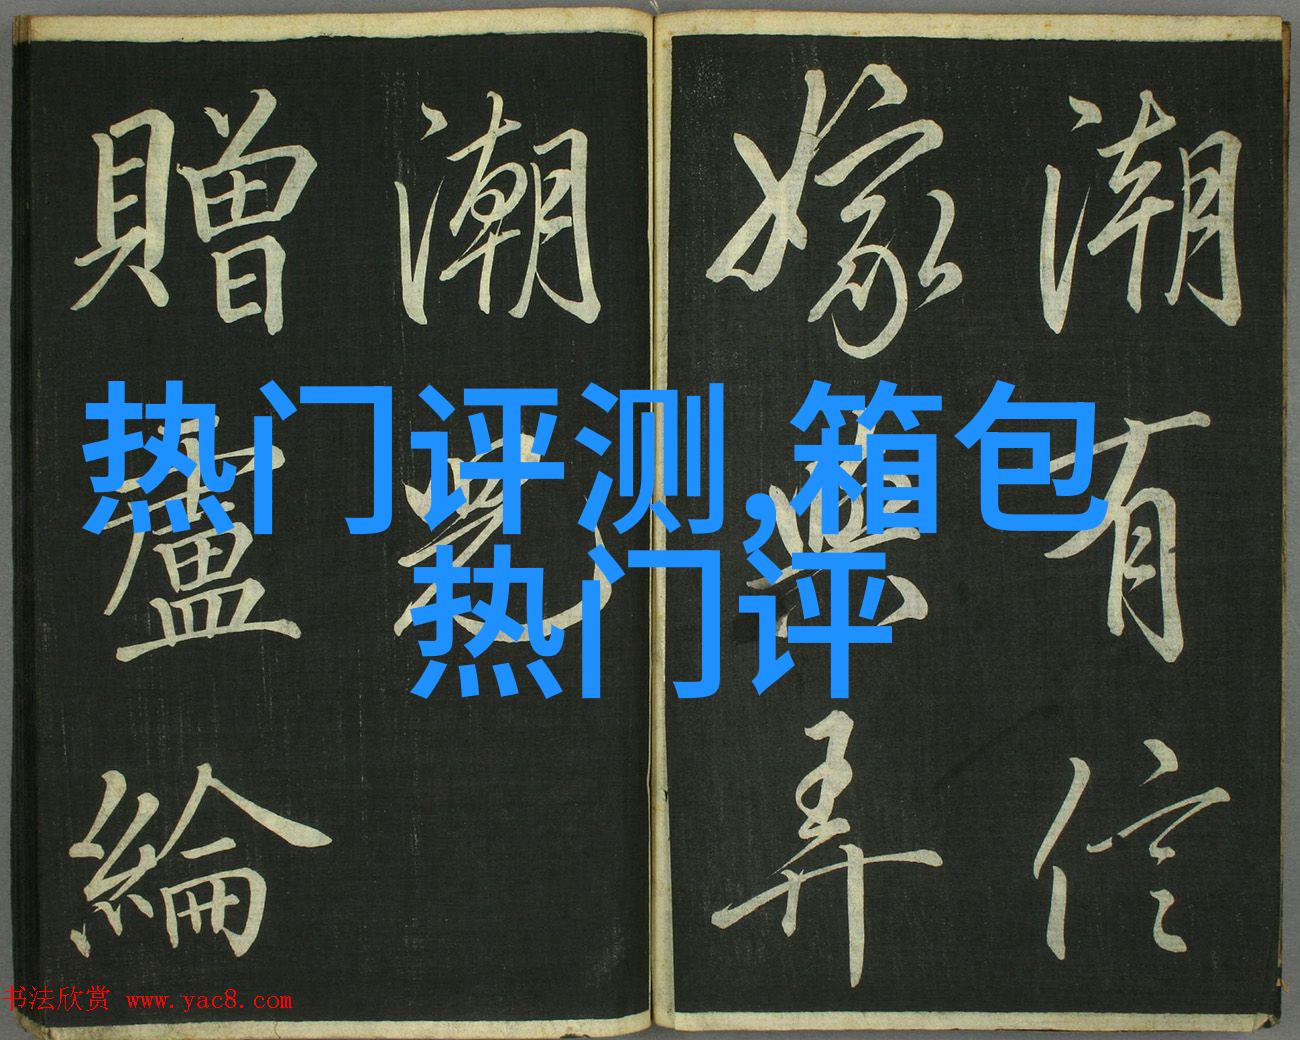 潮有信
嫁與弄
潮兒
贈盧綸
热门评测,箱包
热门评
书法欣赏 www.yac8.com